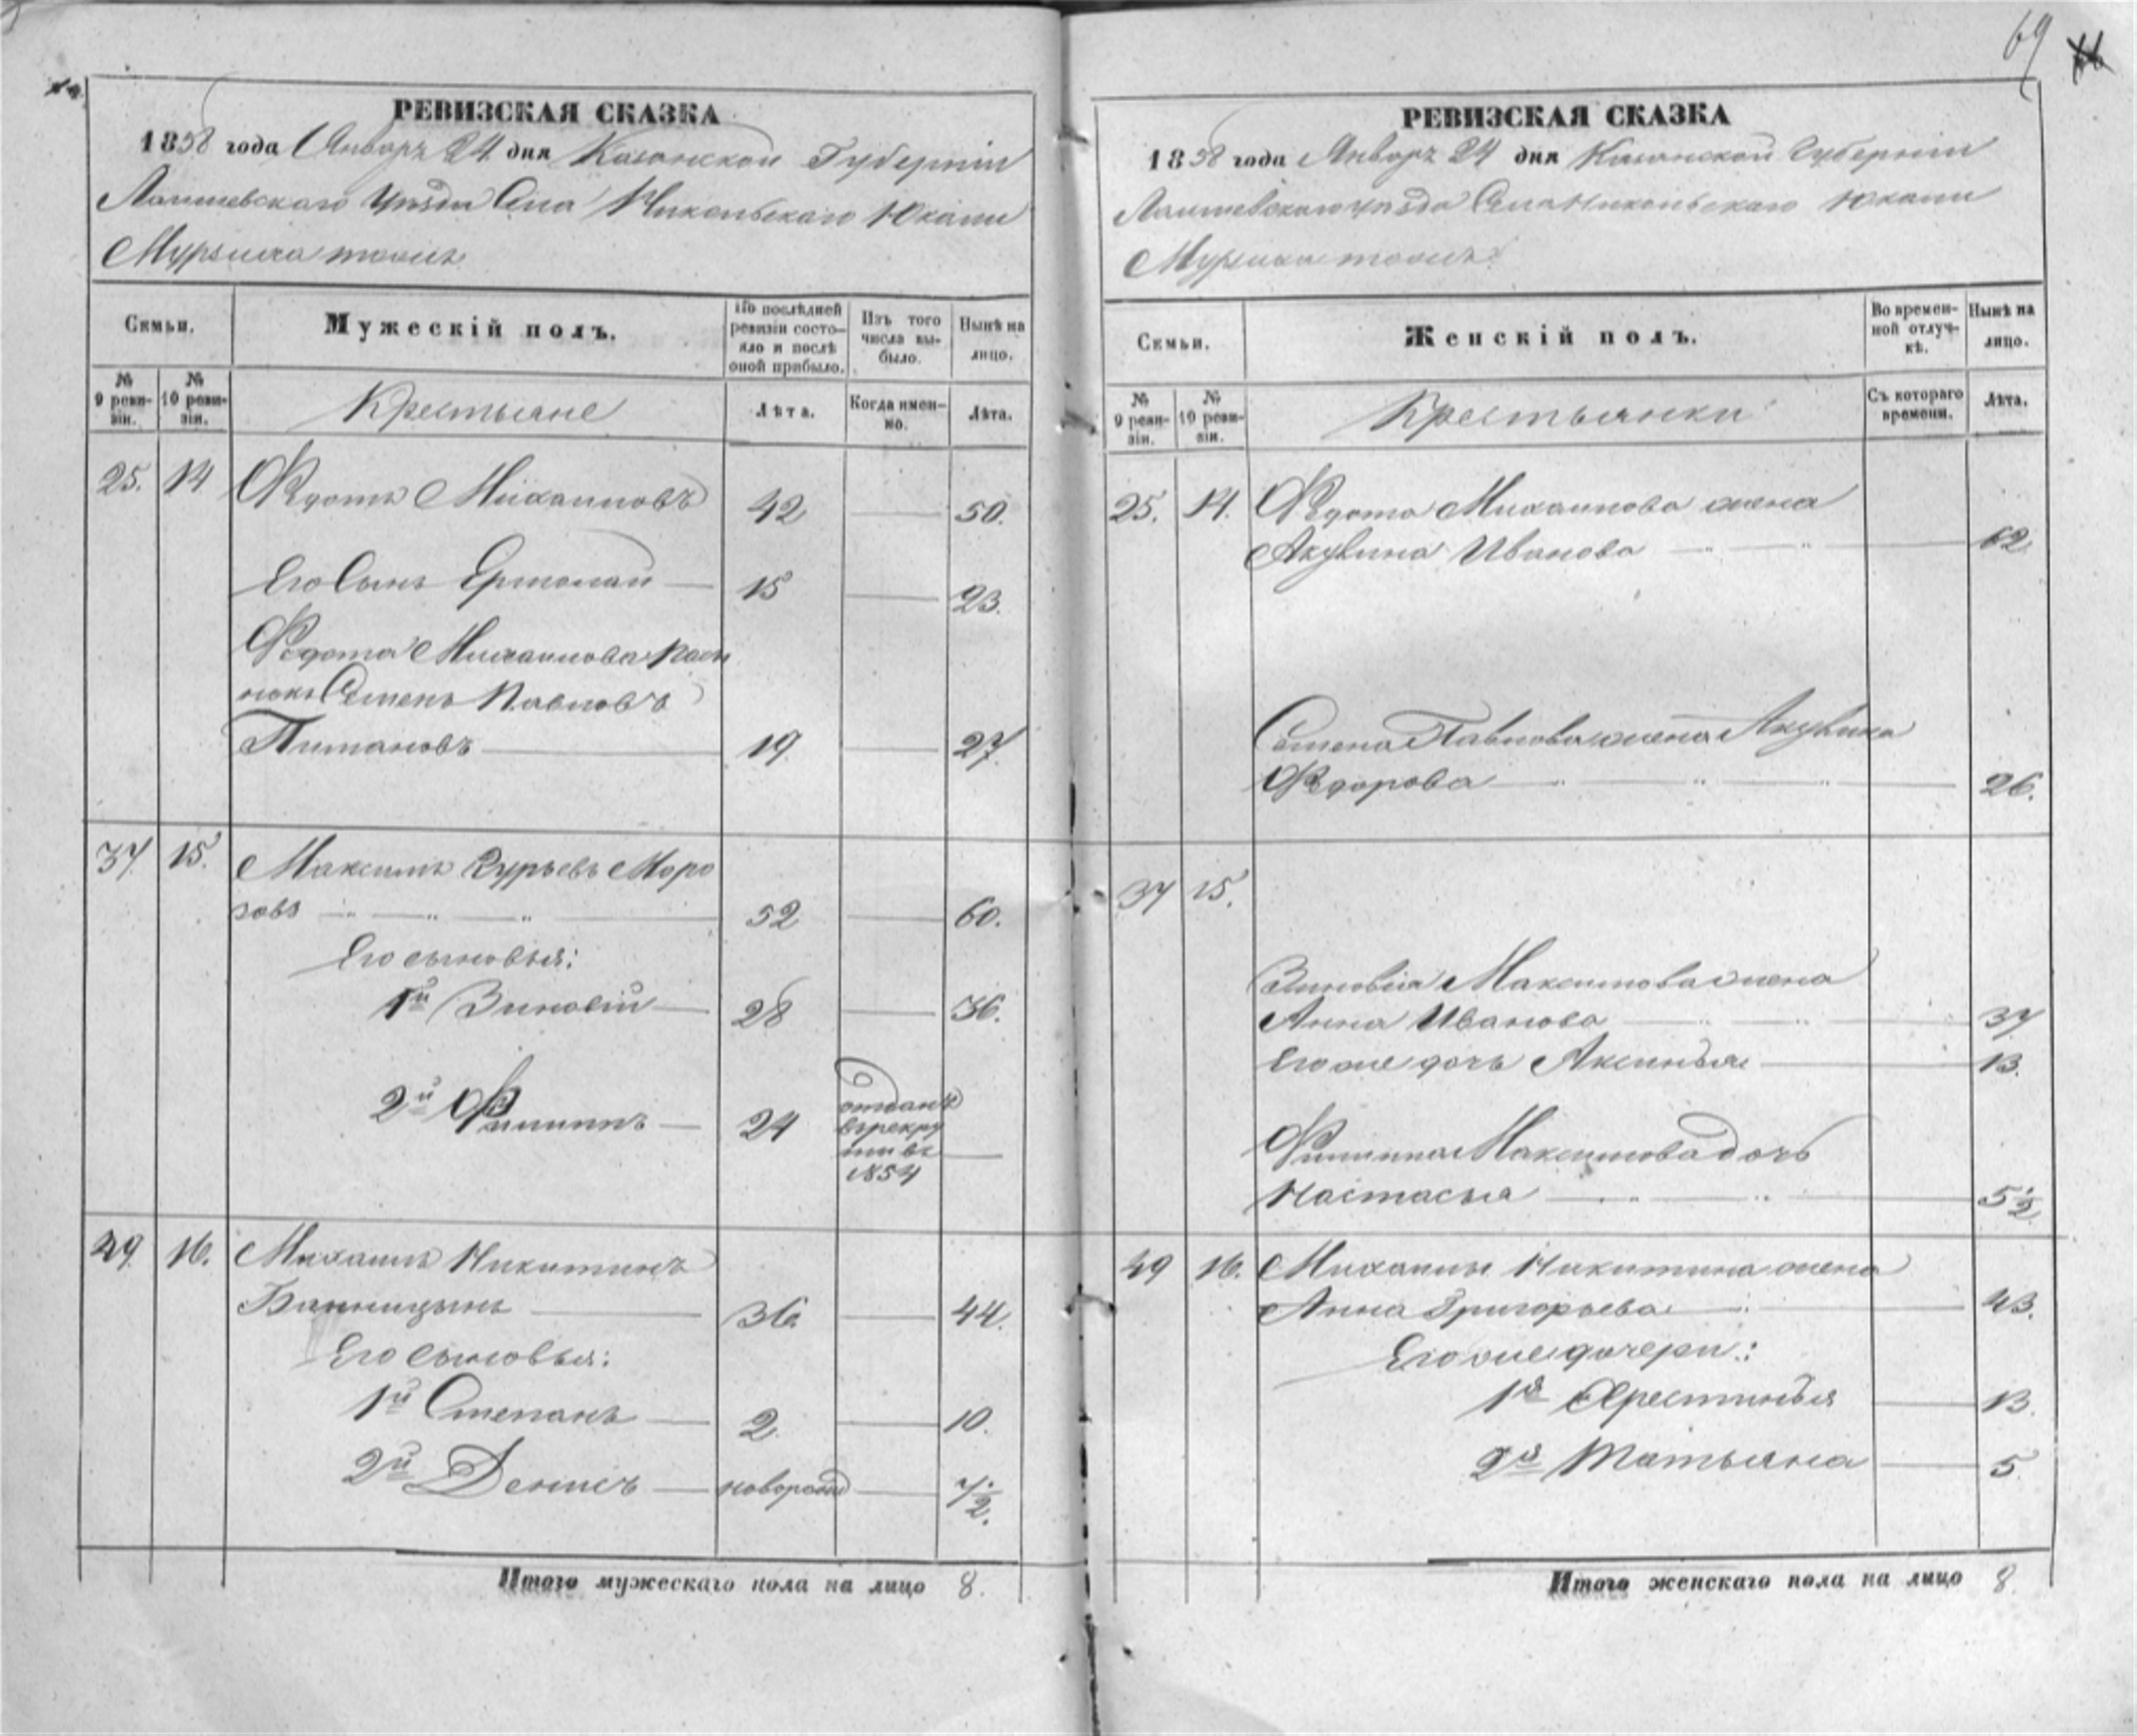 69
РЕВИЗСКАЯ СКАЗКА
1858 года Январъ 24 дня Казанской Губерніи
Лаишевскаго Уѣзда Села Никольскаго
Мурзиха тожъ
Семьи.
Мужескій полъ.
По послѣдней ревизіи состояло и послѣ оной прибыло.
Изъ того числа выбыло.
Нынѣ на лицо.
№ 9 ревизіи.
№ 10 ревизіи.
Крестьяне
Лѣта.
Когда именно.
Лѣта.
25. 14 Ѳедотъ Михаиловъ 42 50.
Его Сынъ Ермолай 15 23.
Ѳедота Михаилова
Семенъ Павловъ
19 27
37. 15. Максимъ Гурьевъ Моро
зовъ 52 60.
Его сыновья:
1й Зиновій 28 36.
2й Филиппъ 24 отданъ
въ рекру
ты въ
1854
29. 16. Михаилъ Никитинъ
36. 44.
Его сыновья:
1й Степанъ 2. 10.
2й Денисъ новорожд 7 1/2.
Итого мужескаго пола на лицо 8.
РЕВИЗСКАЯ СКАЗКА
1858 года Январъ 24 дня Казанской Губерніи
Лаишевскаго уѣзда Села Никольскаго
Мурзиха тожъ
Семьи.
Женскій полъ.
Во временной отлучкѣ.
Нынѣ на лицо.
№ 9 ревизіи.
№ 10 ревизіи.
Крестьянки
Съ котораго времени.
Лѣта.
25. 14. Ѳедота Михаилова жена
Акулина Иванова 62
Семена Павлова жена Акулина
Ѳедорова 26.
37 15.
Зиновія Максимова жена
Анна Иванова 37
Его же дочь Аксинья 13.
Филиппа Максимова дочь
Настасья 5 1/2
29 16. Михаилы Никитина жена
Анна Григорьева 43.
Его же дочери:
1я Хрестинья 13.
2я Татьяна 5
Итого женскаго пола на лицо 8.